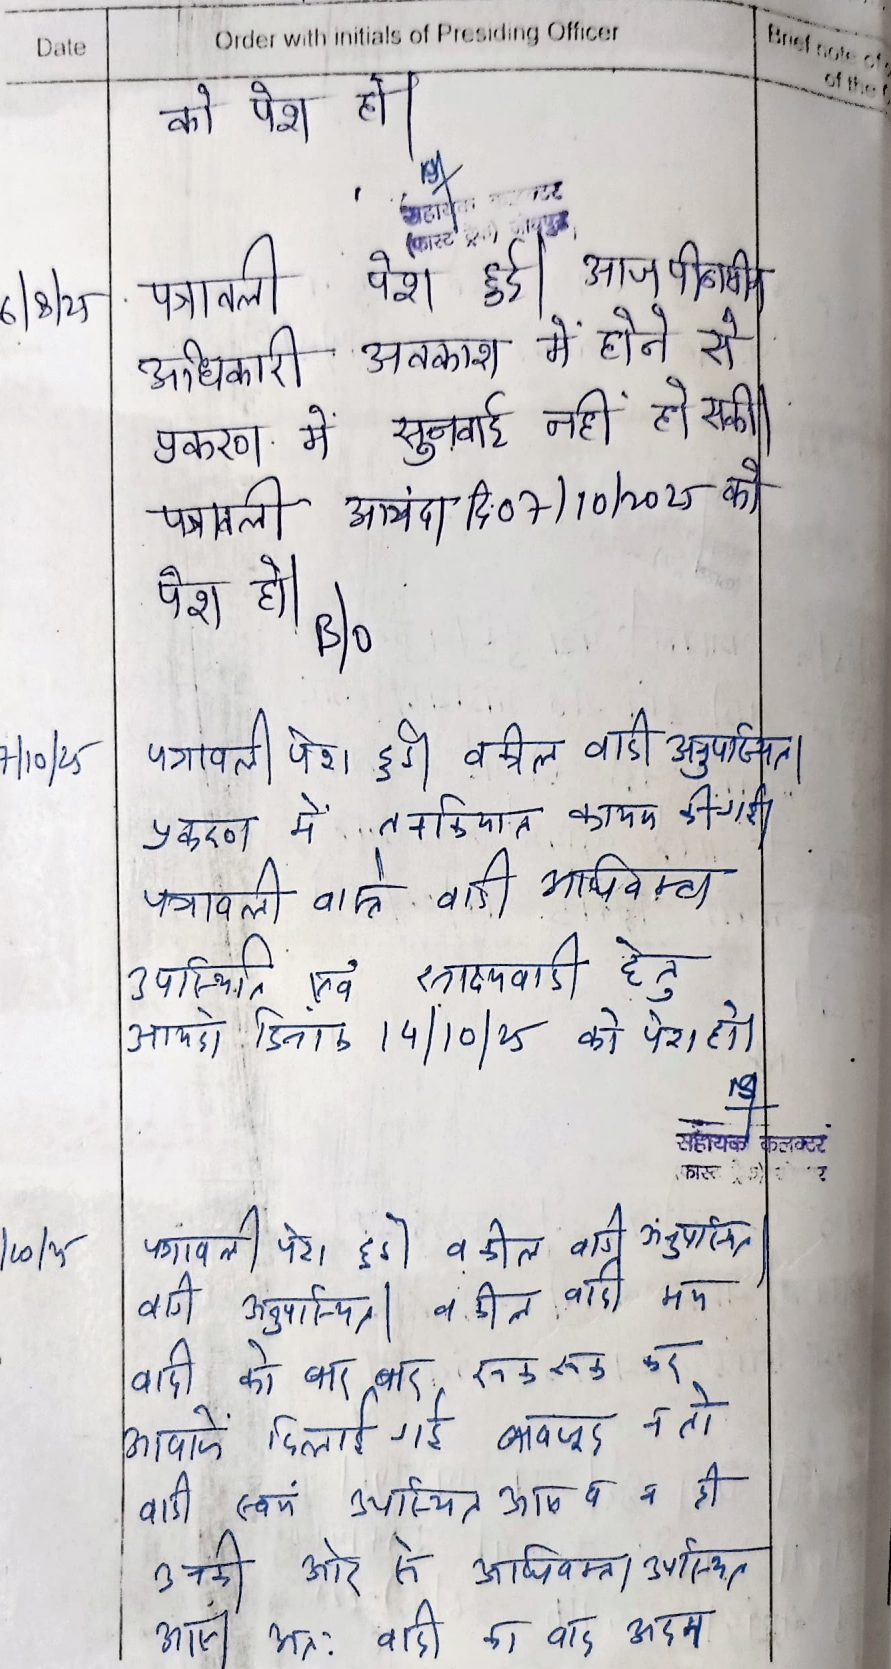 Date
Order with initials of Presiding Officer
Brief note of
of the
को पेश हो।
सहायक कलक्टर
(फास्ट ट्रेक) जोधपुर
6/8/25 पत्रावली पेश हुई। आज पीठासीन
अधिकारी अवकाश में होने से
प्रकरण में सुनवाई नहीं हो सकी।
पत्रावली आयंदा दि. 07/10/2025 को
पेश हो।
B/o
7/10/25 पत्रावली पेश हुई। वकील वादी अनुपस्थित।
प्रकरण में तनकियात कायम की गई।
पत्रावली वास्ते वादी अधिवक्ता
उपस्थिति एवं हेतु
आयंदा दिनांक 14/10/25 को पेश हो।
सहायक कलक्टर
फास्ट
/10/25 पत्रावली पेश हुई। वकील वादी अनुपस्थित।
वादी अनुपस्थित। वकील वादी मय
वादी को बार बार रूक रूक कर
आवाजें दिलाई गई बावजूद न तो
वादी स्वयं उपस्थित आए व न ही
उनकी ओर से अधिवक्ता उपस्थित
आए। अतः वादी का वाद अदम